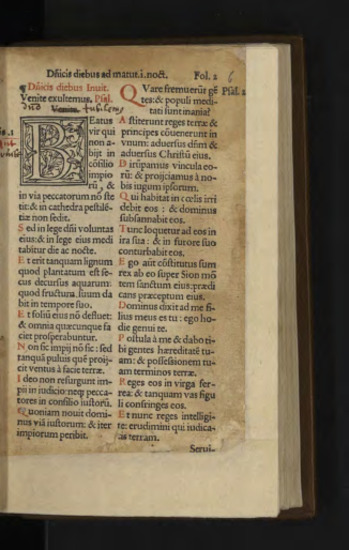 Dñicis diebus ad matut. i. noct. Fol. 2 6
Dñicis diebus Inuit.
Venite exultemus. Psal.
Eatus
vir qui
non a-
bijt in
cõsilio
impio
rũ, &
in via peccatorum nõ ste
tit: & in cathedra pestilẽ-
tiæ non sedit.
Sed in lege dñi voluntas
eius: & in lege eius medi
tabitur die ac nocte.
Et erit tanquam lignum
quod plantatum est se-
cus decursus aquarum:
quod fructum suum da
bit in tempore suo.
Et foliũ eius nõ defluet:
& omnia quæcunque fa
ciet prosperabuntur.
Non sic impij nõ sic: sed
tanquã puluis quẽ proij-
cit ventus à facie terræ.
Ideo non resurgunt im-
pij in iudicio: neq; pecca-
tores in consilio iustorũ.
Quoniam nouit domi-
nus viã iustorum: & iter
impiorum peribit.
Quare fremuerũt gẽ Psal. 2
tes: & populi medi-
tati sunt inania?
Astiterunt reges terræ &
principes cõuenerunt in
vnum: aduersus dñm &
aduersus Christũ eius.
Dirũpamus vincula eo-
rũ: & proijciamus à no-
bis iugum ipsorum.
Qui habitat in cœlis irri
debit eos: & dominus
subsannabit eos.
Tunc loquetur ad eos in
ira sua: & in furore suo
conturbabit eos.
Ego aũt cõstitutus sum
rex ab eo super Sion mõ
tem sanctum eius: prædi
cans præceptum eius.
Dominus dixit ad me fi-
lius meus es tu: ego ho-
die genui te.
Postula à me & dabo ti-
bi gentes hæreditatẽ tu-
am: & possessionem tu-
am terminos terræ.
Reges eos in virga fer-
rea: & tanquam vas figu
li confringes eos.
Et nunc reges intelligi-
te: erudimini qui iudica-
tis terram.
Serui-